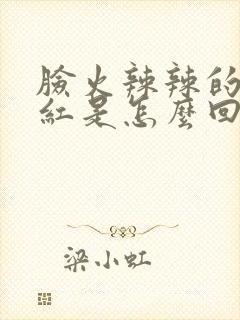 臉火辣辣的
紅是怎麼回
梁小虹